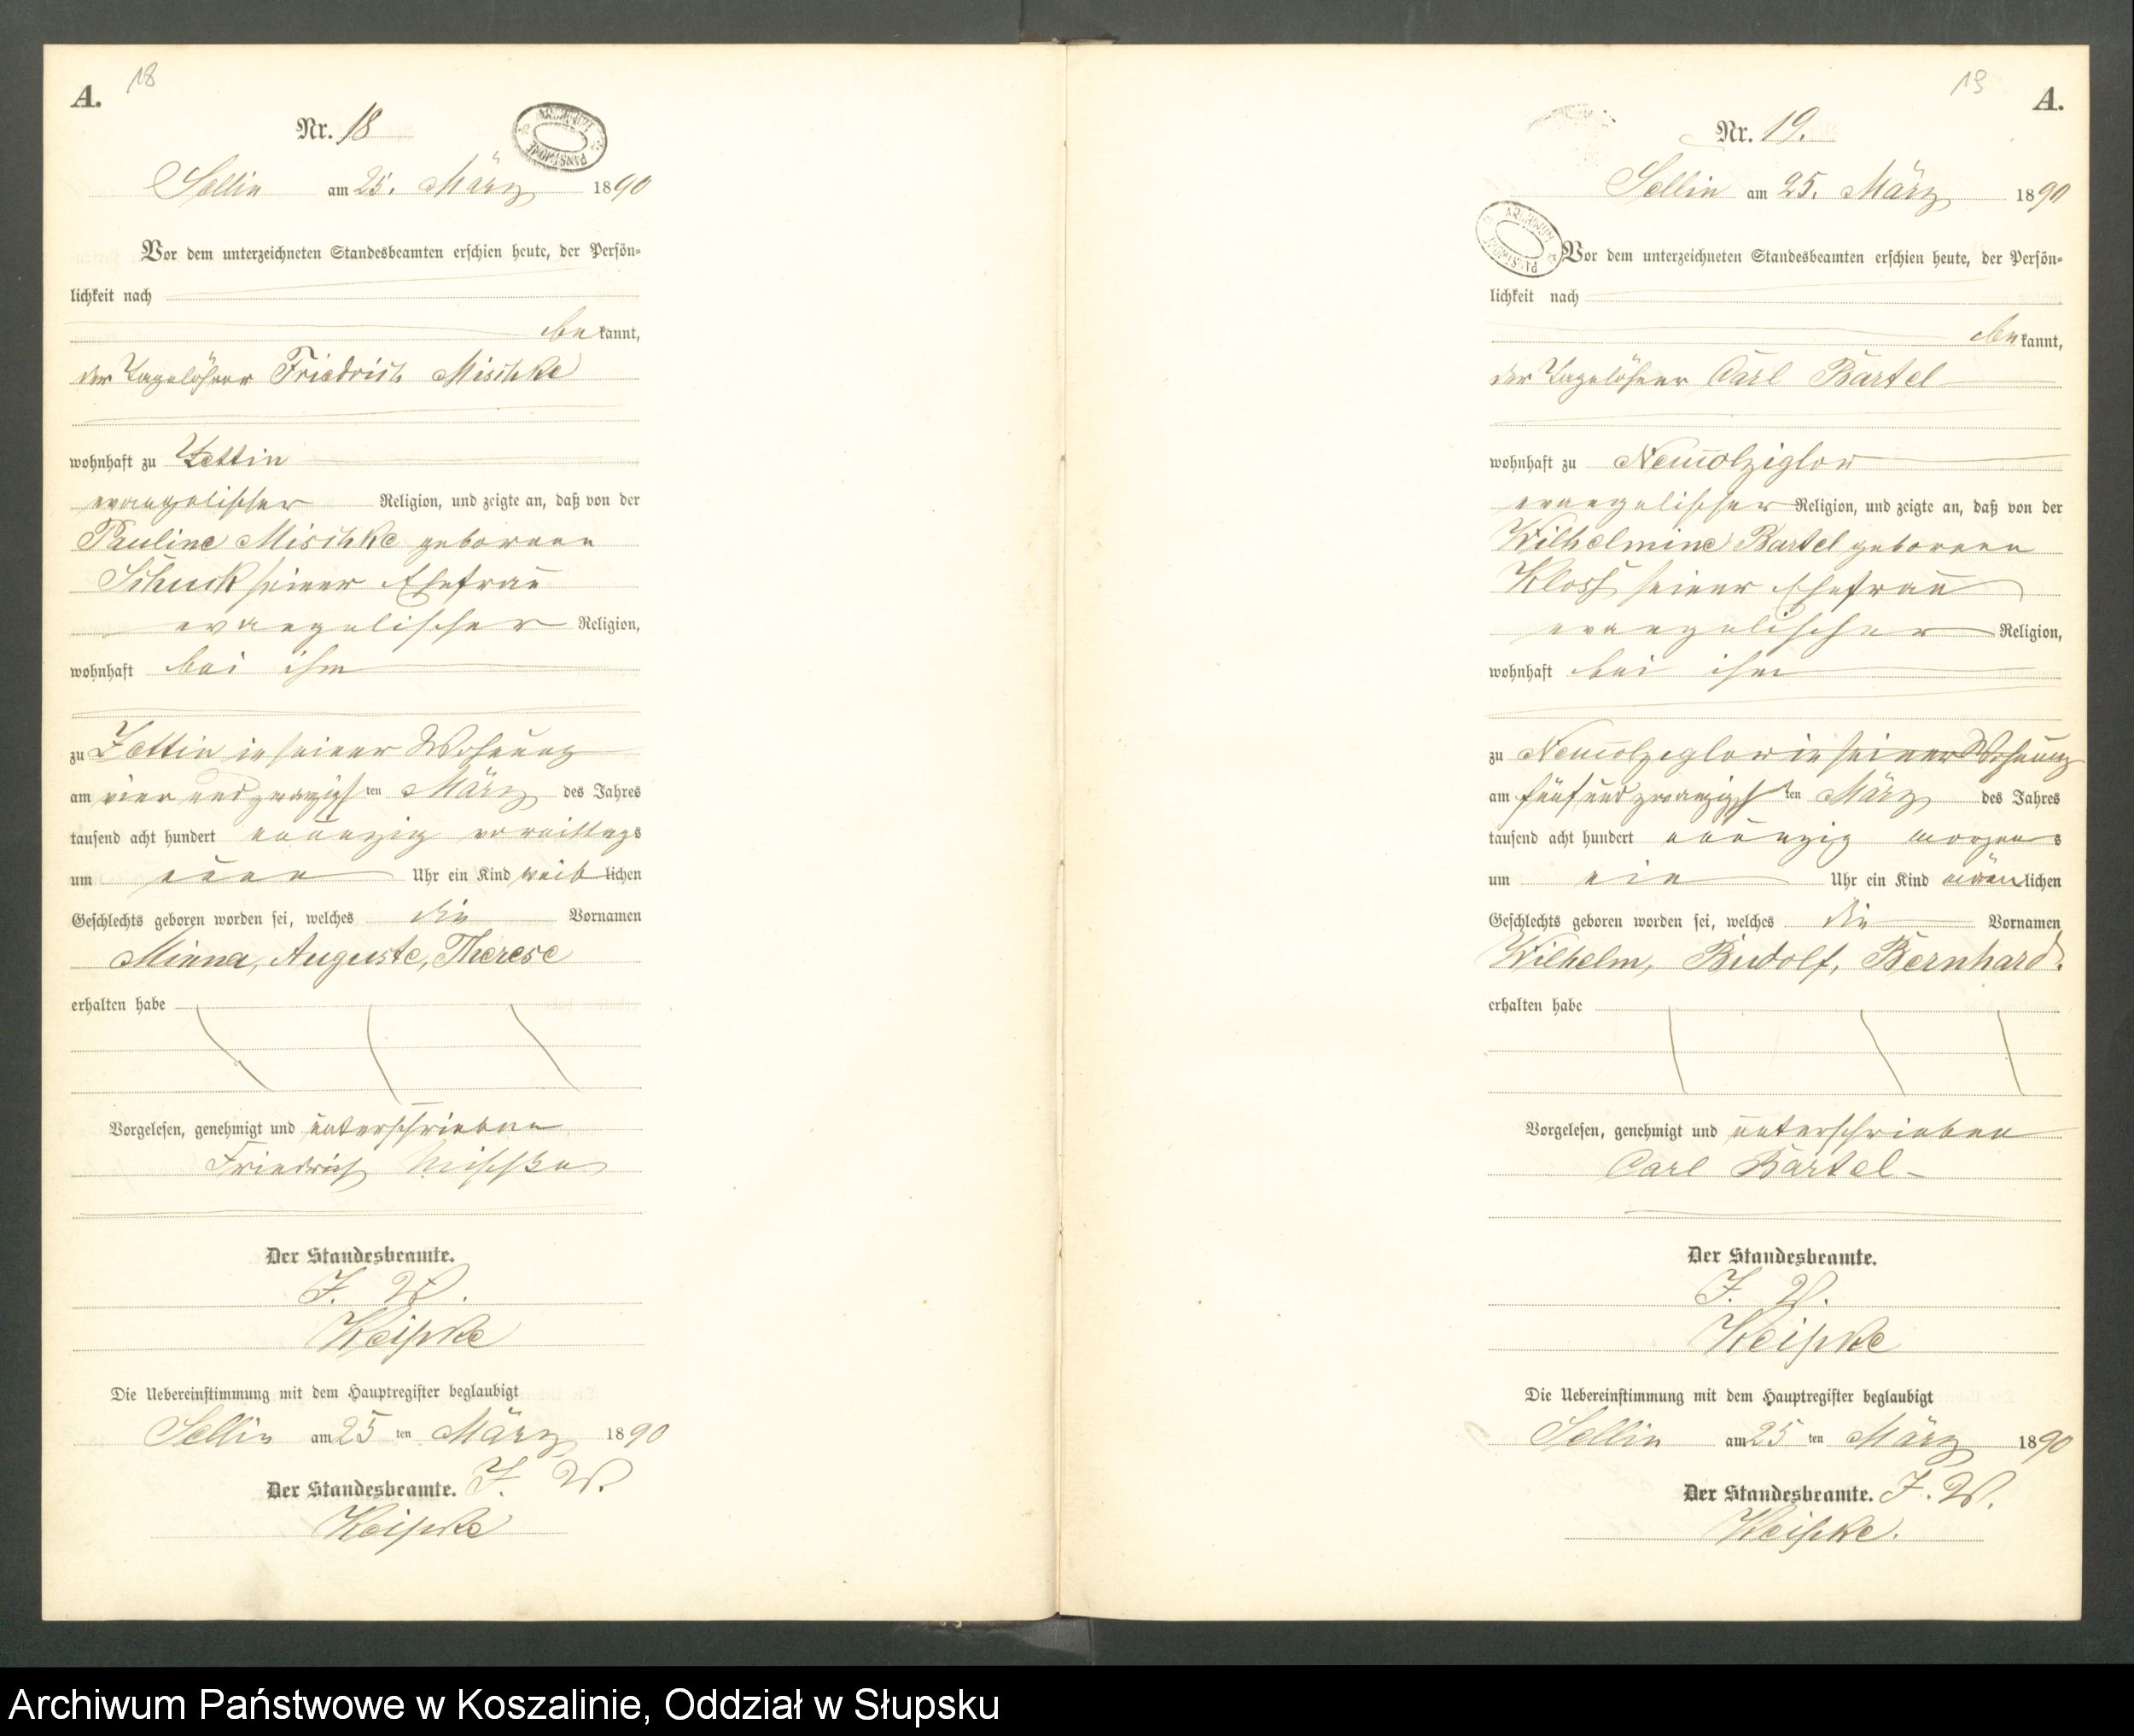 18
A.
Nr. 18
ARCHIWUM PAŃSTWOWE
Sellin am 25. März 1890
Vor dem unterzeichneten Standesbeamten erschien heute, der Persön-
lichkeit nach
bekannt,
der Tagelöhner Friedrich Mischke
wohnhaft zu Zettin
evangelischer Religion, und zeigte an, daß von der
Pauline Mischke geborenen
Schuck seiner Ehefrau
evangelischer Religion,
wohnhaft bei ihm
zu Zettin in seiner Wohnung
am vier und zwanzigsten März des Jahres
tausend acht hundert neunzig vormittags
um neun Uhr ein Kind weiblichen
Geschlechts geboren worden sei, welches die Vornamen
Minna, Auguste, Therese
erhalten habe
Vorgelesen, genehmigt und unterschrieben
Friedrich Mischke
Der Standesbeamte.
J. V.
Die Uebereinstimmung mit dem Hauptregister beglaubigt
Sellin am 25 ten März 1890
Der Standesbeamte. J. V.
19
A.
Nr. 19.
Sellin am 25. März 1890
ARCHIWUM PAŃSTWOWE
Vor dem unterzeichneten Standesbeamten erschien heute, der Persön-
lichkeit nach
bekannt,
der Tagelöhner Carl Bartel
wohnhaft zu
evangelischer Religion, und zeigte an, daß von der
Wilhelmine Bartel geborenen
Kloss seiner Ehefrau
evangelischer Religion,
wohnhaft bei ihm
zu in seiner Wohnung
am fünf und zwanzigsten März des Jahres
tausend acht hundert neunzig morgens
um ein Uhr ein Kind männlichen
Geschlechts geboren worden sei, welches die Vornamen
Wilhelm, Rudolf, Bernhard.
erhalten habe
Vorgelesen, genehmigt und unterschrieben
Carl Bartel
Der Standesbeamte.
J. V.
Die Uebereinstimmung mit dem Hauptregister beglaubigt
Sellin am 25 ten März 1890
Der Standesbeamte. J. V.
Archiwum Państwowe w Koszalinie, Oddział w Słupsku